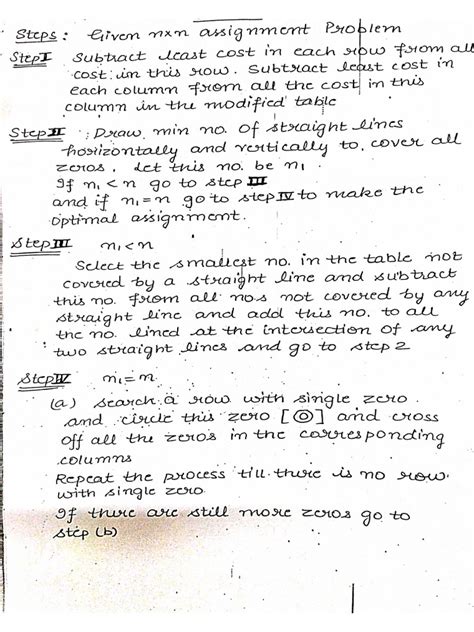 Steps : Given nxn assignment Problem
Step I Subtract least cost in each row from all
cost in this row. Subtract least cost in
each column from all the cost in this
column in the modified table
Step II : Draw min no. of straight lines
horizontally and vertically to cover all
zeros, let this no. be n₁
If n₁ < n go to step III
and if n₁ = n go to step IV to make the
optimal assignment.
Step III n₁ < n
Select the smallest no. in the table not
covered by a straight line and subtract
this no. from all nos not covered by any
straight line and add this no. to all
the no. lined at the intersection of any
two straight lines and go to step 2
Step IV n₁ = n
(a) search a row with single zero
and circle this zero [⓪] and cross
off all the zeros in the corresponding
columns
Repeat the process till there is no row
with single zero
If there are still more zeros go to
step (b)